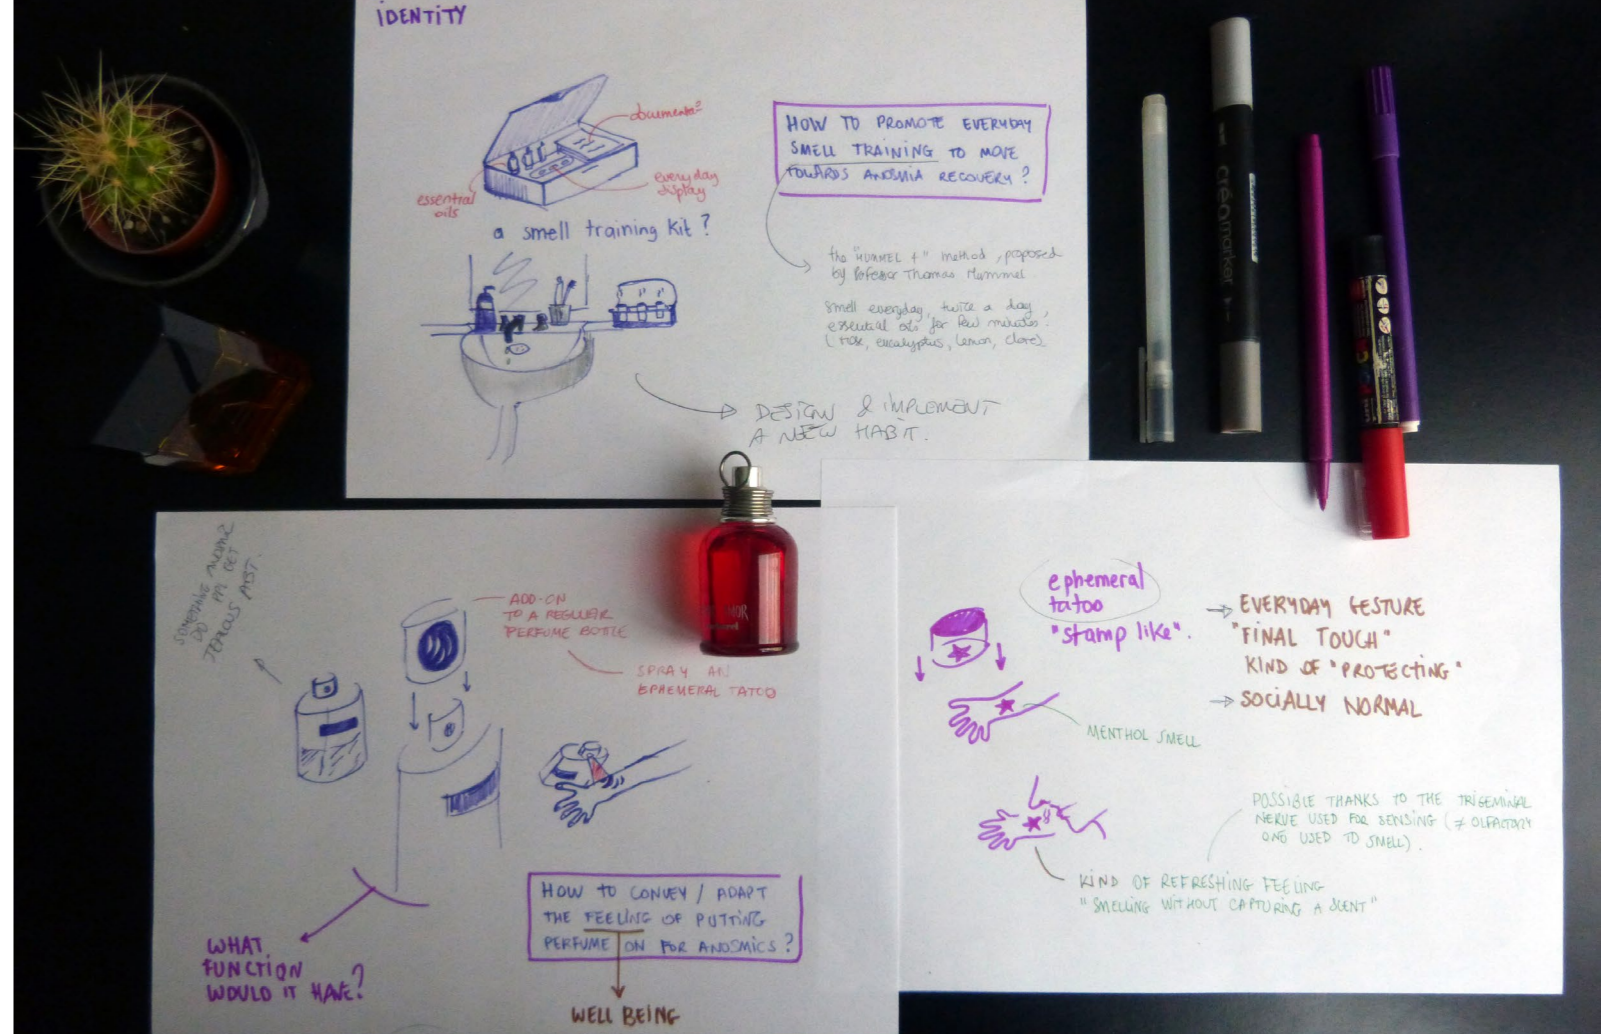 IDENTITY
documents
essential
oils
everyday
display
a smell training kit ?
HOW TO PROMOTE EVERYDAY
SMELL TRAINING TO MOVE
TOWARDS ANOSMIA RECOVERY ?
the "HUMMEL +" method, proposed
by Professor Thomas Hummel
smell everyday, twice a day,
essential oils for few minutes.
(rose, eucalyptus, lemon, clove).
DESIGN & IMPLEMENT
A NEW HABIT.
créamarker
SOMETHING
DO PPL GET
JEALOUS
ADD-ON
TO A REGULER
PERFUME BOTTLE
SPRAY AN
EPHEMERAL TATOO
WHAT
FUNCTION
WOULD IT HAVE?
HOW TO CONVEY / ADAPT
THE FEELING OF PUTTING
PERFUME ON FOR ANOSMICS ?
WELL BEING
ephemeral
tatoo
"stamp like".
EVERYDAY GESTURE
"FINAL TOUCH"
KIND OF "PROTECTING"
SOCIALLY NORMAL
MENTHOL SMELL
POSSIBLE THANKS TO THE TRIGEMINAL
NERVE USED FOR SENSING (≠ OLFACTORY
ONE USED TO SMELL).
KIND OF REFRESHING FEELING
"SMELLING WITHOUT CAPTURING A SCENT"